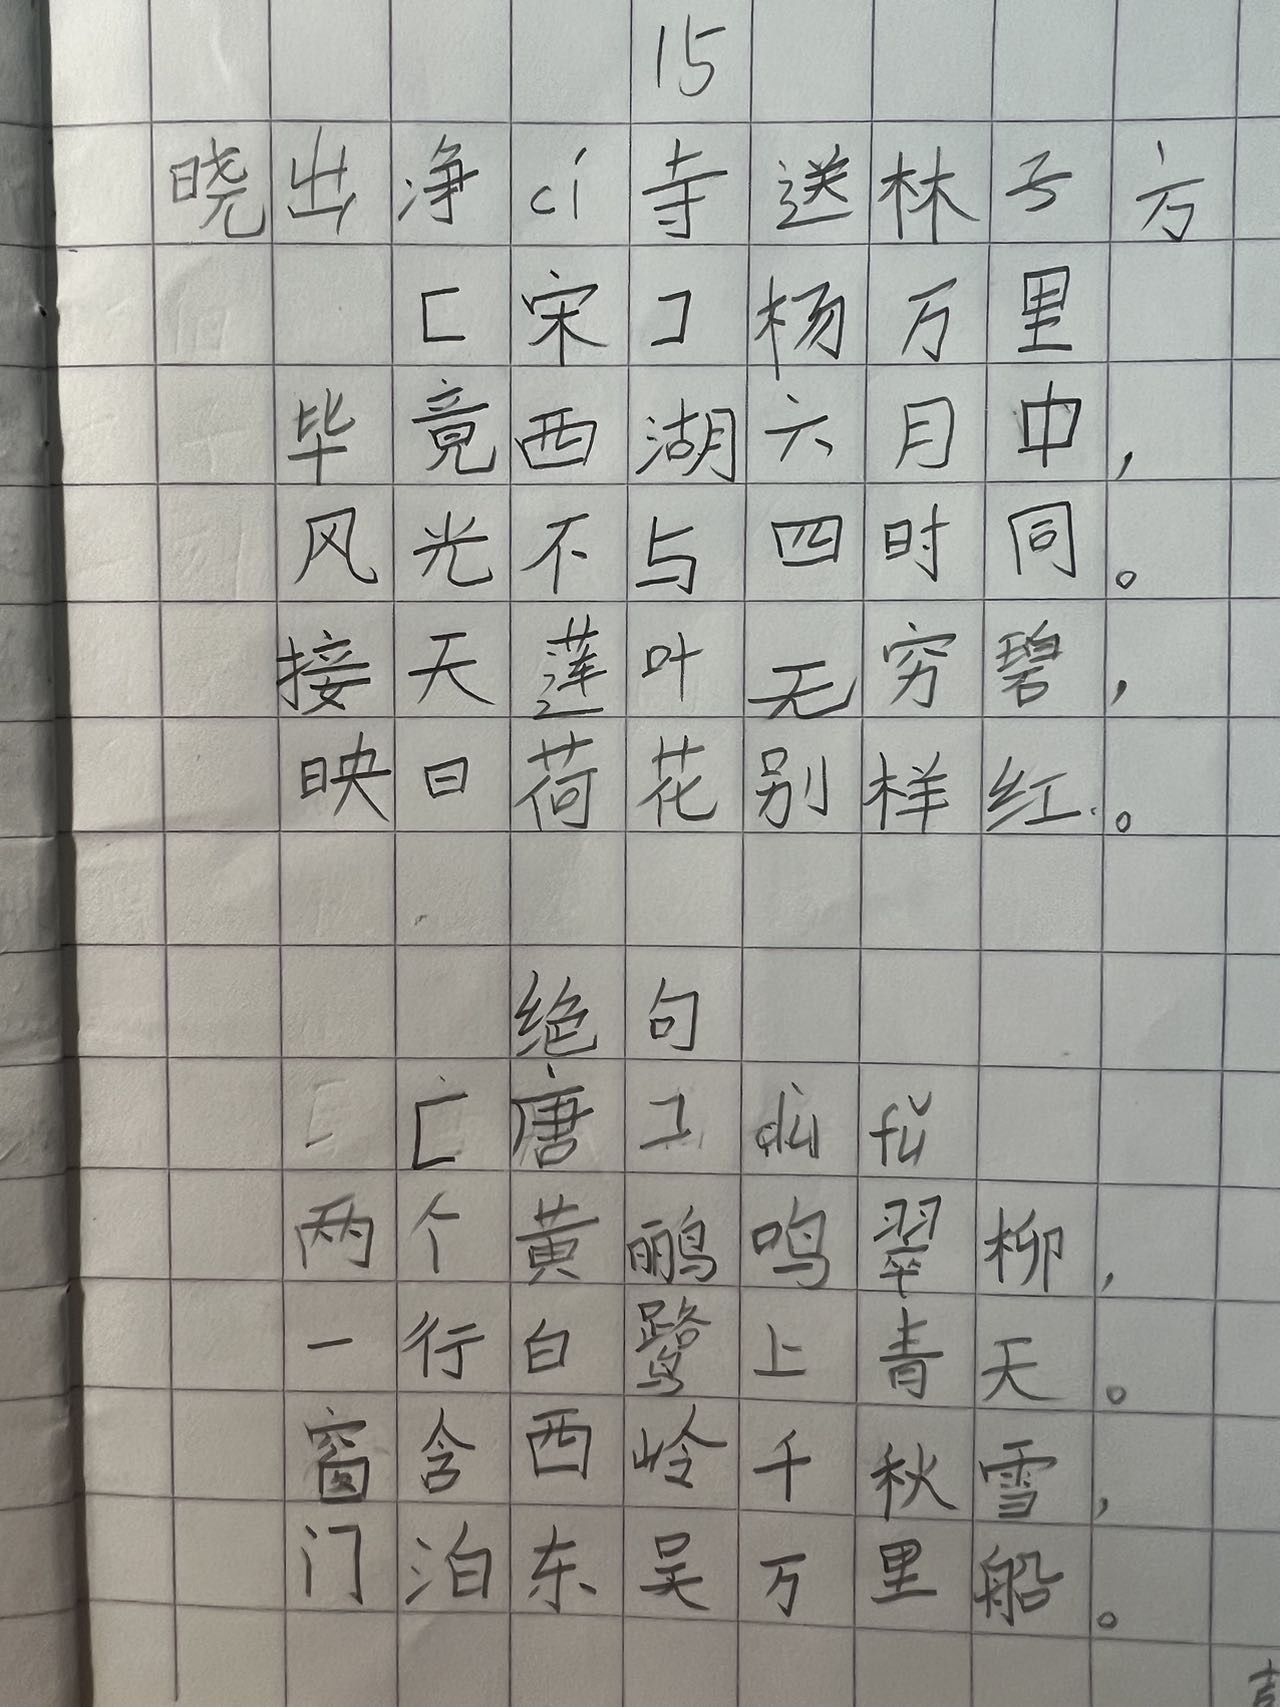 15
晓出净cí寺送林子方
[宋]杨万里
毕竟西湖六月中，
风光不与四时同。
接天莲叶无穷碧，
映日荷花别样红。
绝句
[唐]dù fǔ
两个黄鹂鸣翠柳，
一行白鹭上青天。
窗含西岭千秋雪，
门泊东吴万里船。